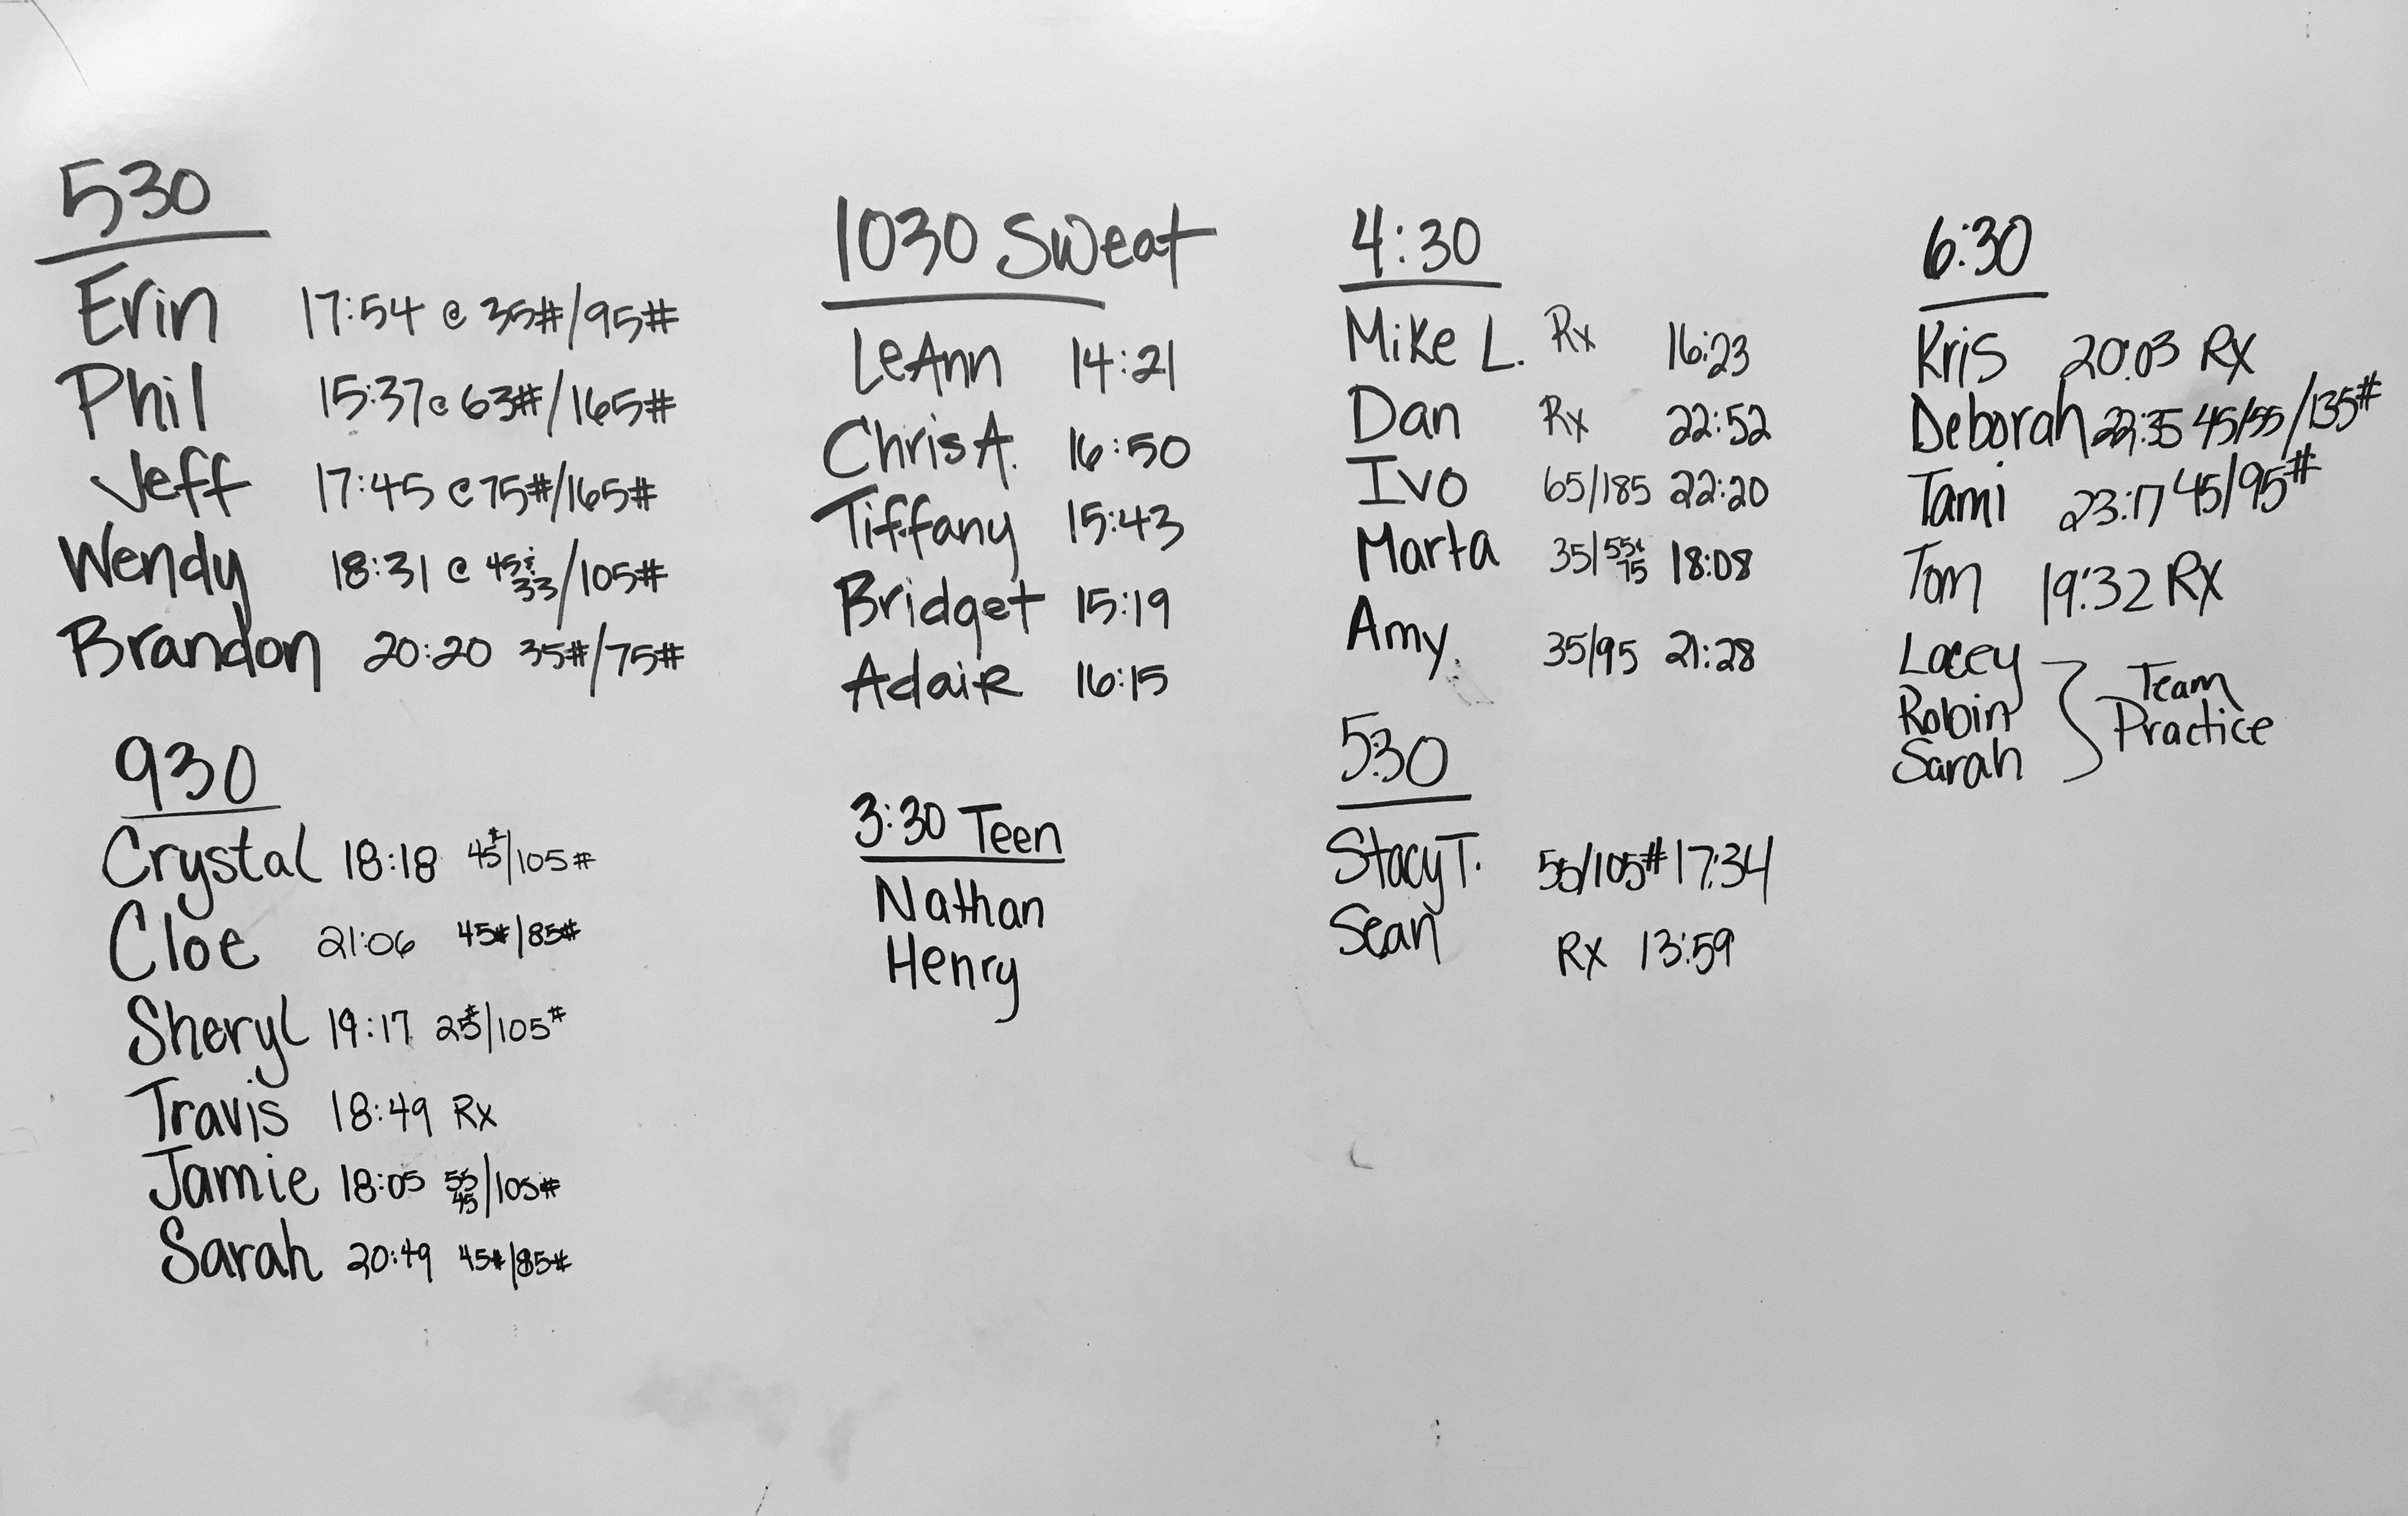 530
Erin 17:54 @ 35#/95#
Phil 15:37@ 63#/165#
Jeff 17:45 @ 75#/165#
Wendy 18:31 @ 45& 33/105#
Brandon 20:20 35#/75#
930
Crystal 18:18 45#/105#
Cloe 21:06 45#/85#
Sheryl 19:17 25#/105#
Travis 18:49 Rx
Jamie 18:05 55 45/105#
Sarah 20:49 45#/85#
1030 Sweat
LeAnn 14:21
Chris A. 16:50
Tiffany 15:43
Bridget 15:19
Adair 16:15
3:30 Teen
Nathan
Henry
4:30
Mike L. Rx 16:23
Dan Rx 22:52
Ivo 65/185 22:20
Marta 35/55& 75 18:08
Amy 35/95 21:28
5:30
Stacy T. 55/105# 17:34
Sean Rx 13:59
6:30
Kris 20:03 Rx
Deborah 22:35 45/55/135#
Tami 23:17 45/95#
Tom 19:32 Rx
Lacey
Robin
Sarah
Team
Practice